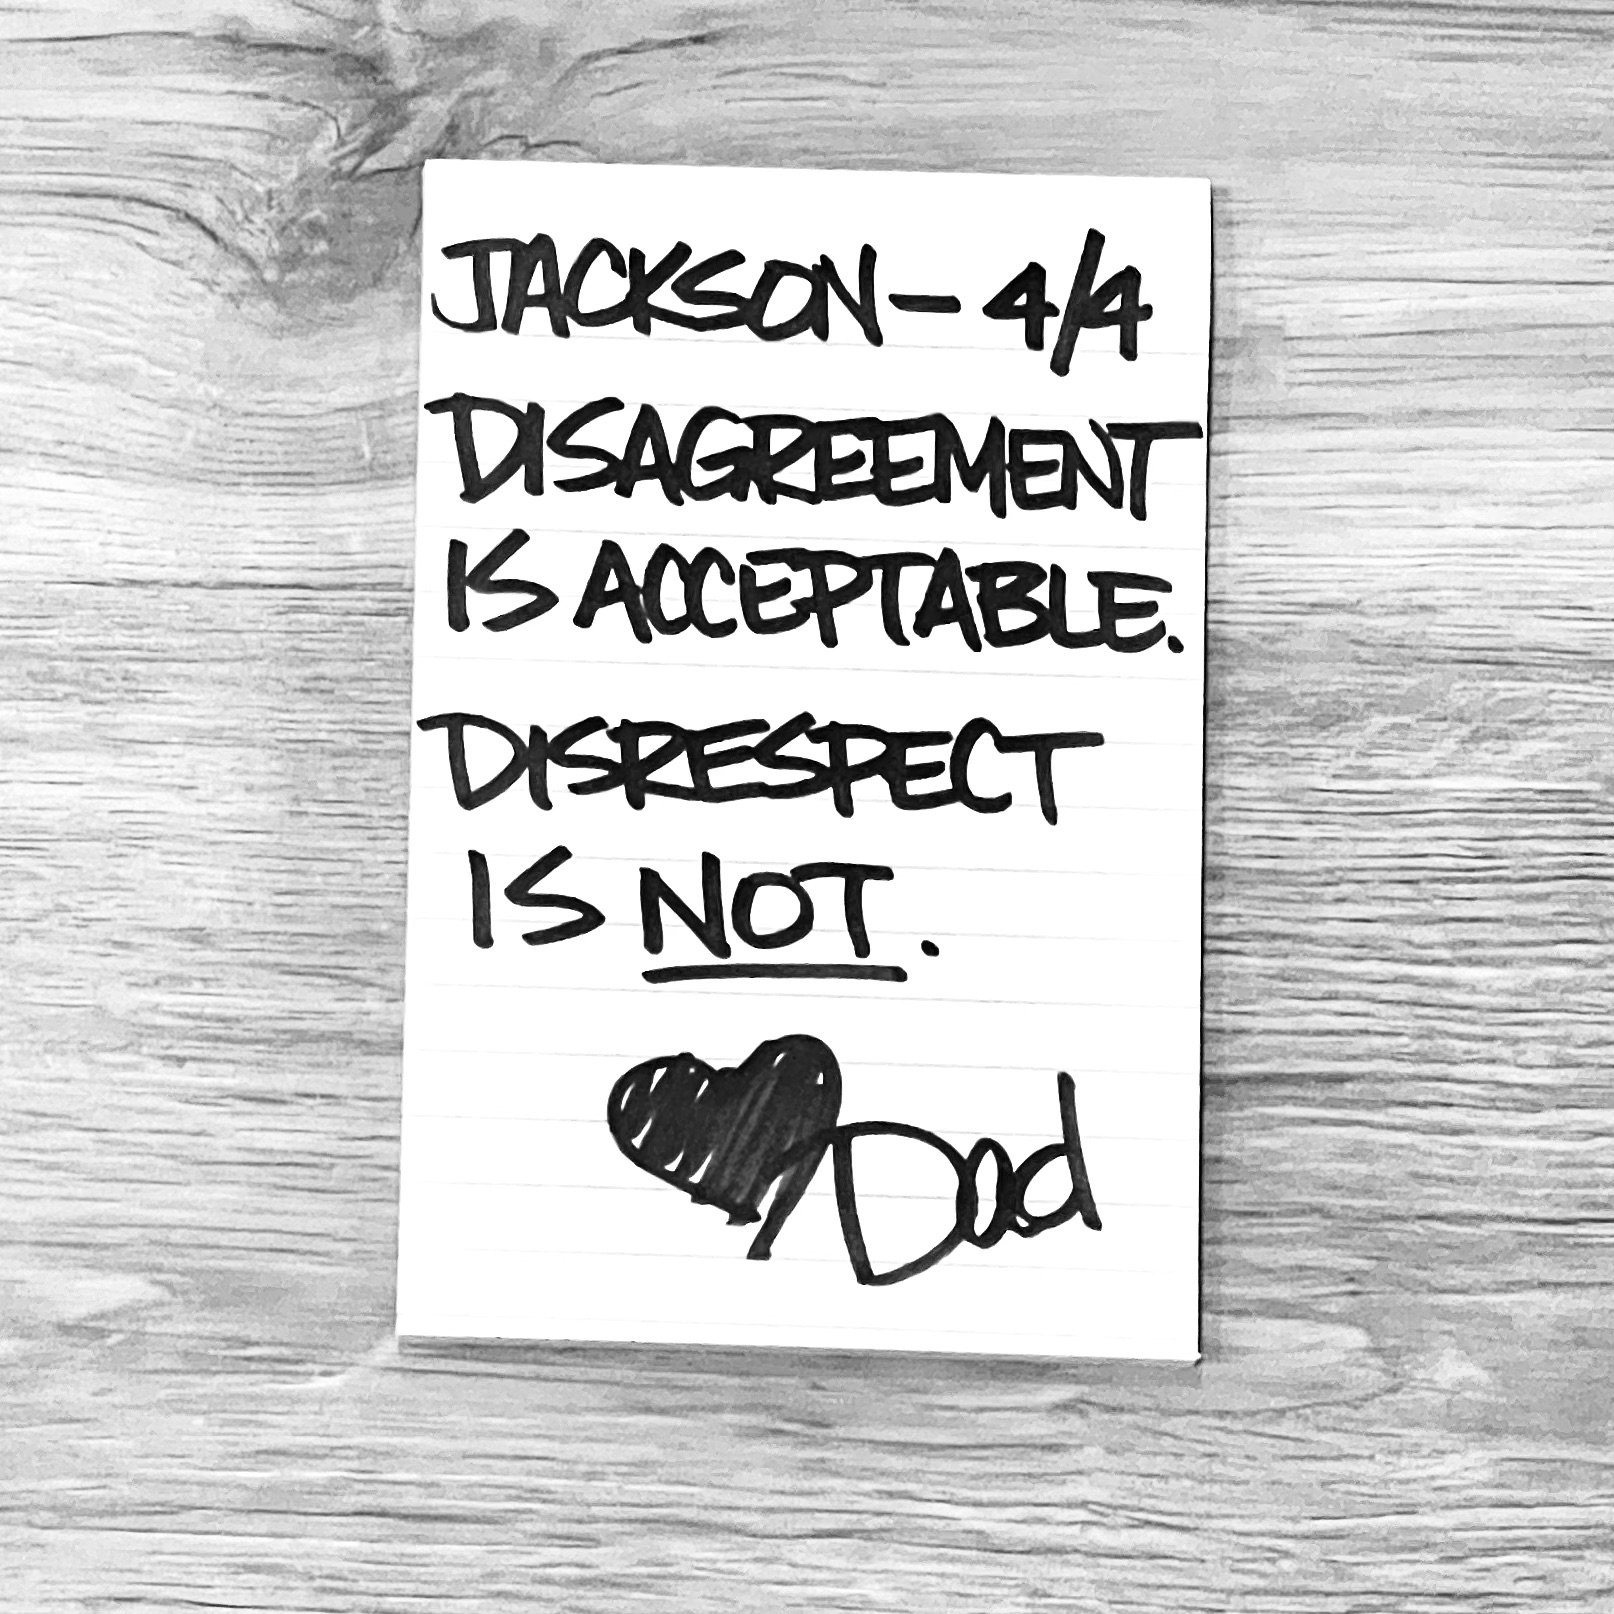 JACKSON – 4/4
DISAGREEMENT
IS ACCEPTABLE.
DISRESPECT
IS NOT.
Dad